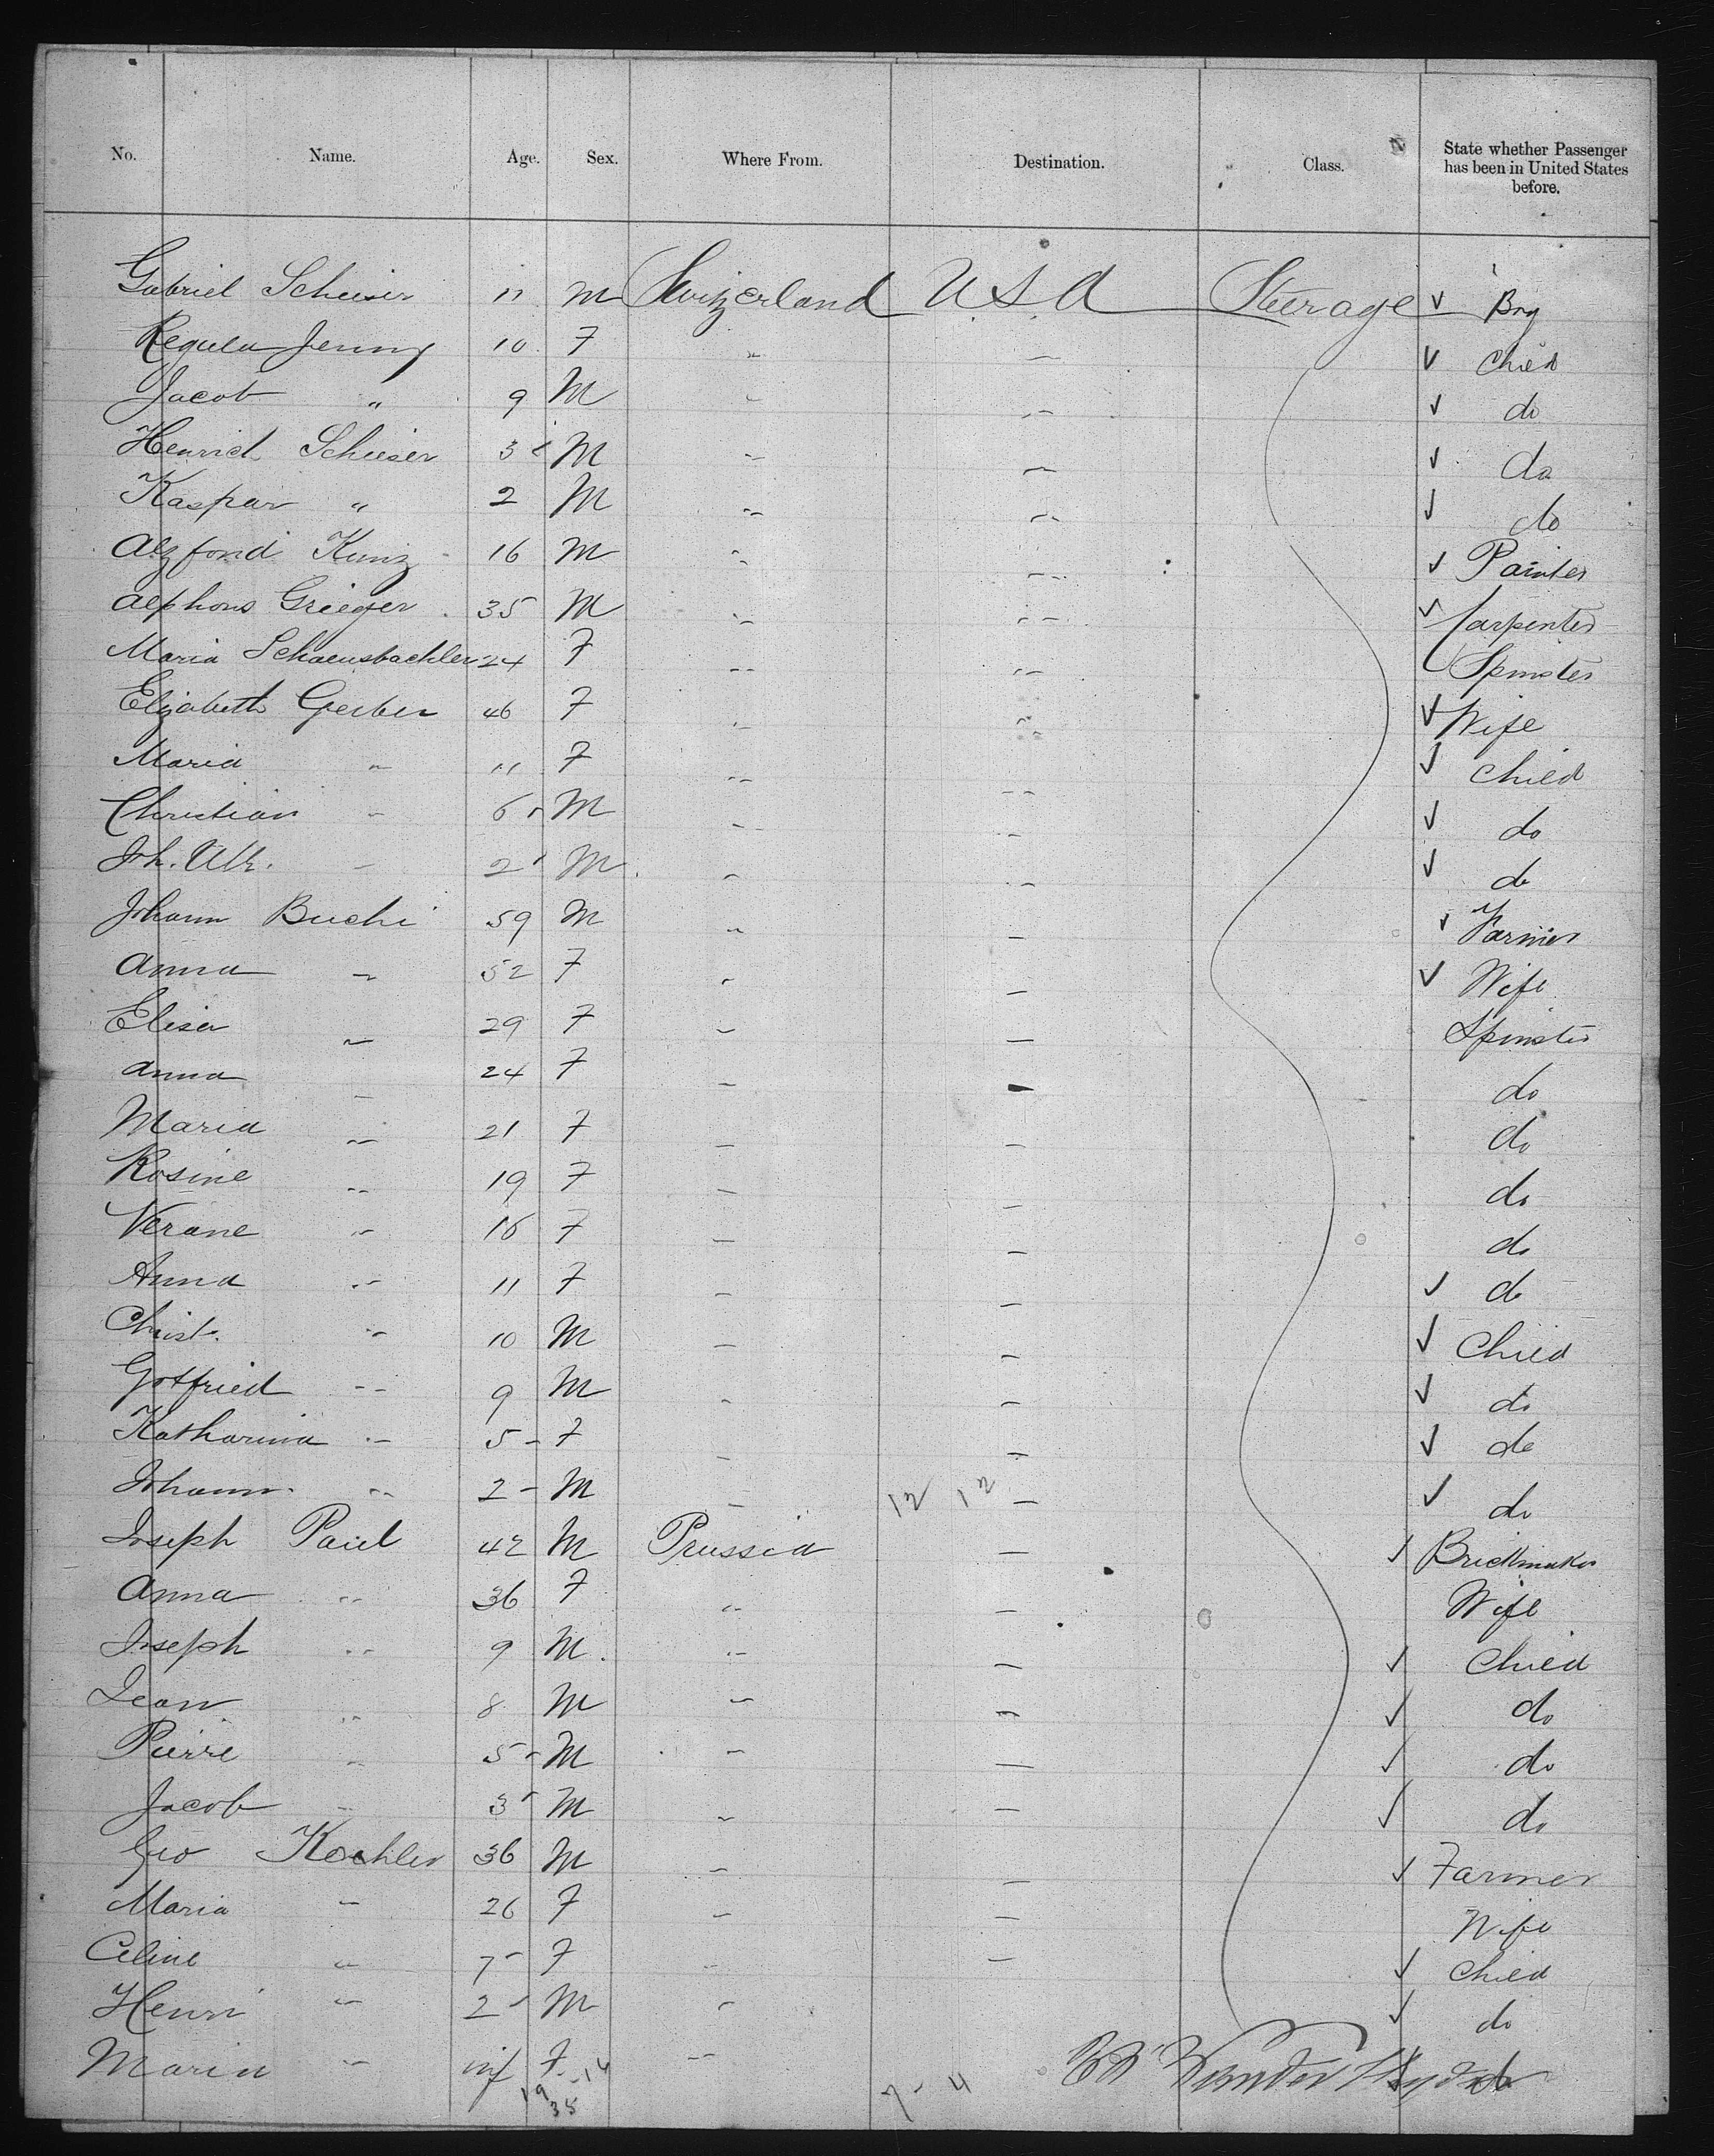 No. Name. Age. Sex. Where From. Destination. Class. State whether Passenger has been in United States before.
Gabriel Scheiser 11 M Switzerland U.S.A Steerage Boy
Regula Jenny 10 F " — Child
Jacob " 9 M " — do
Henrich Schieser 3 M " — do
Kaspar " 2 M " — do
Kunz 16 M " — Painter
Alphons Grieger 35 M " — Carpenter
Maria Schaensbachler 24 F " — Spinster
Elizabeth Gerber 46 F " — Wife
Maria " 11 F " — Child
Christian " 6 M " — do
Joh. Ulr. " 2 M " — do
Johann Buchi 59 M " — Farmer
Anna " 52 F " — Wife
Elisa " 29 F " — Spinster
Anna " 24 F " — do
Maria " 21 F " — do
Rosine " 19 F " — do
Verane " 16 F " — do
Anna " 11 F " — do
Christ. " 10 M " — Child
Gotfried " 9 M " — do
Katharina " 5 F " — do
Johann " 2 M " 12 12 — do
Joseph Paul 42 M Prussia — Brickmaker
Anna " 36 F " — Wife
Joseph " 9 M " — Child
Jean " 8 M " — do
Pierre " 5 M " — do
Jacob " 3 M " — do
Geo Koehler 36 M " — Farmer
Maria " 26 F " — Wife
Celine " 7 F " — Child
Henri " 2 M " — do
Maria " inf F " do
19 - 14
35
7 - 4